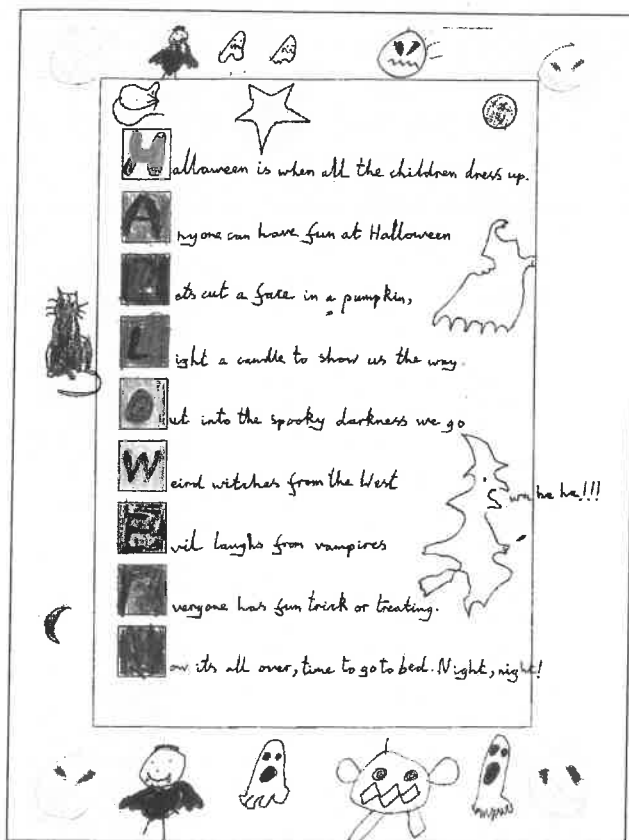 Halloween is when all the children dress up.
Anyone can have fun at Halloween
Lets cut a face in a pumpkin,
Light a candle to show us the way.
Out into the spooky darkness we go
Weird witches from the West
he he!!!
Evil laughs from vampires
Everyone has fun trick or treating.
Now its all over, time to go to bed. Night, night!